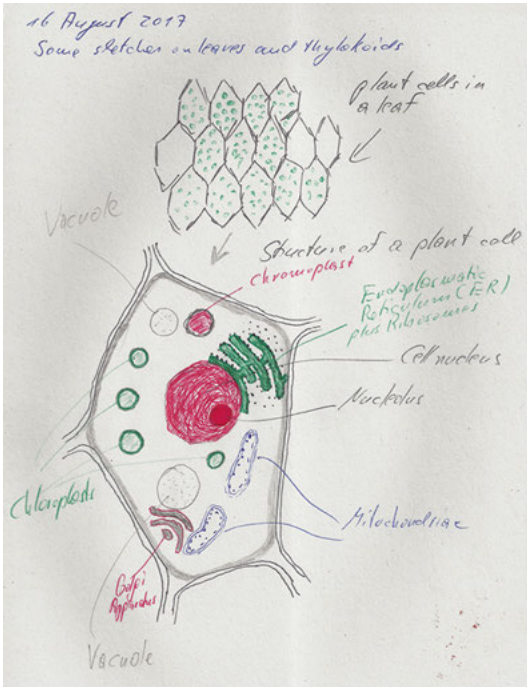 16 August 2017
Some sketches on leaves and thylokoids
plant cells in
a leaf
Vacuole
Structure of a plant cell
Chromoplast
Endoplasmatic
Reticulum (ER)
plus Ribosomes
Cell nucleus
Nucleolus
Chloroplasts
Mitochondriae
Golgi
Apparatus
Vacuole